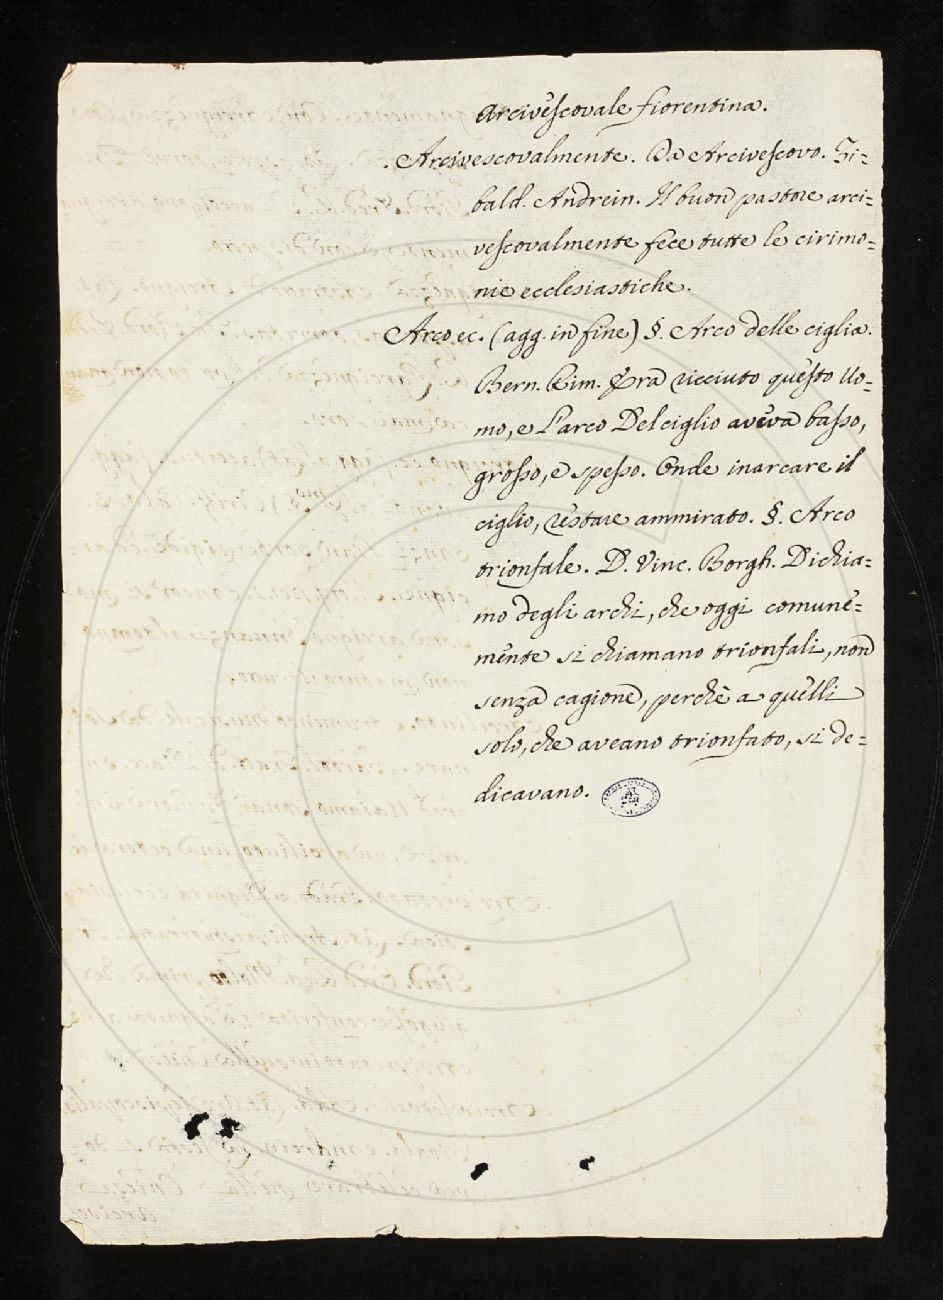 Arcivescovale fiorentina.
. Arcivescovalmente. Da Arcivescovo. Ti=
bald. Andrein. Il buon pastore arci=
vescovalmente fece tutte le cirimo=
nie ecclesiastiche.
Arco ec. (agg. in fine) §. Arco delle ciglia.
Bern. Rim. Era ricciuto questo uo=
mo, e l'arco del ciglio aveva basso,
grosso, e spesso. Onde inarcare il
ciglio, restare ammirato. §. Arco
trionfale. D. Vinc. Borgh. Dichia=
mo degli archi, che oggi comune=
mente si chiamano trionfali, non
senza cagione, perchè a quelli
solo, che aveano trionfato, si de=
dicavano.